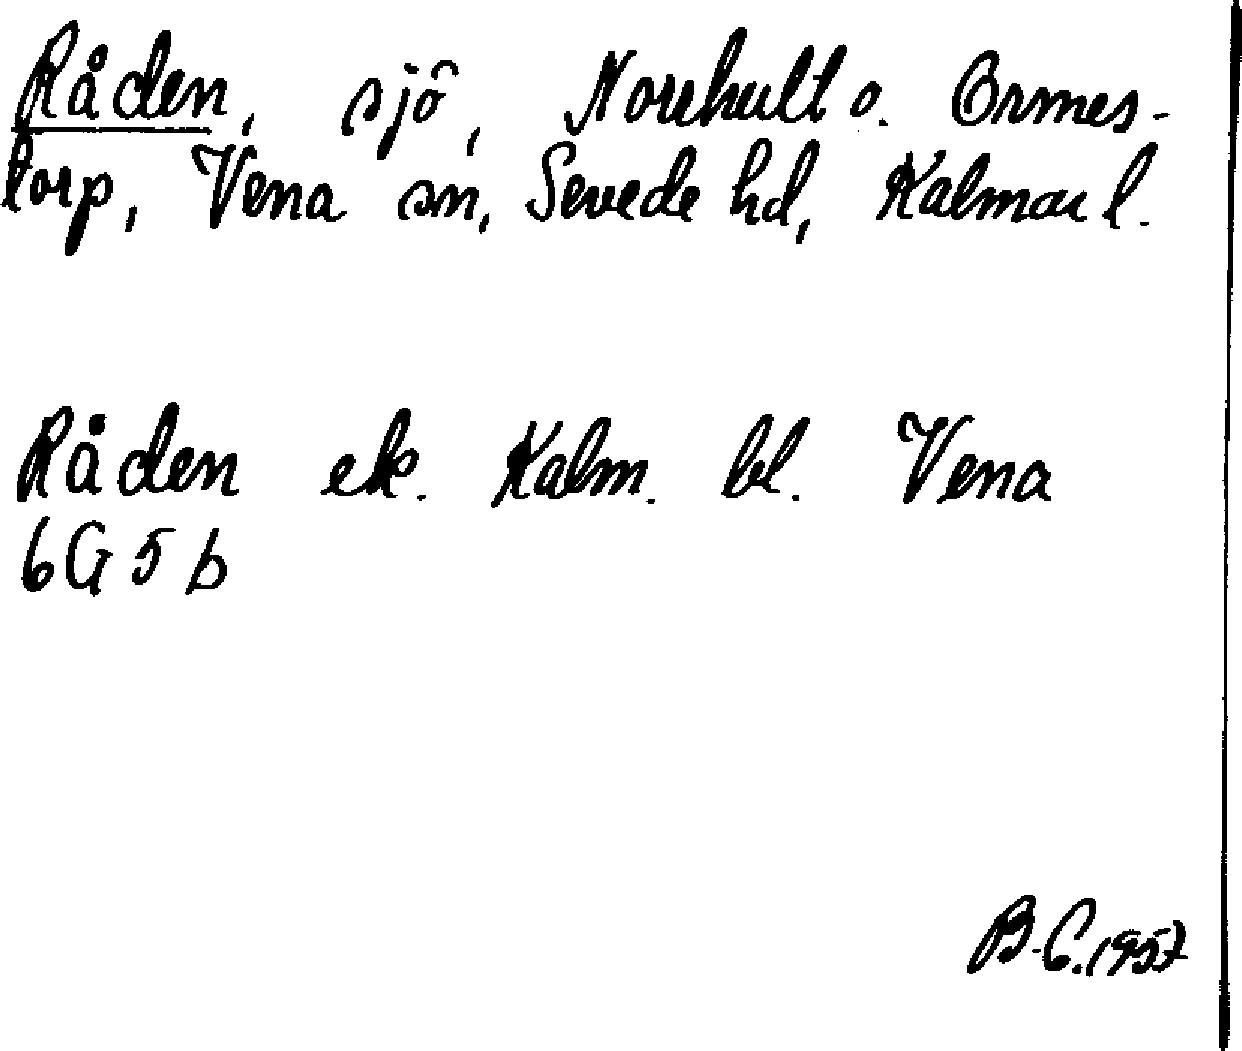 Råden, sjö, Norrhult o. Ormes-
torp, Vena sn, Sevede hd, Kalmar l.
Råden ek. Kalm. bl. Vena
6G5b
B-C.1957